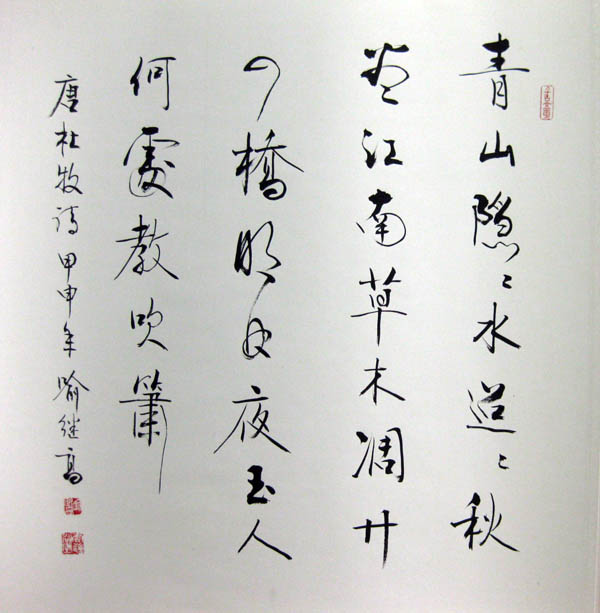 青山隐〻水迢〻秋
尽江南草木凋廿
四橋明月夜玉人
何處教吹簫
唐杜牧诗甲申年喻继高